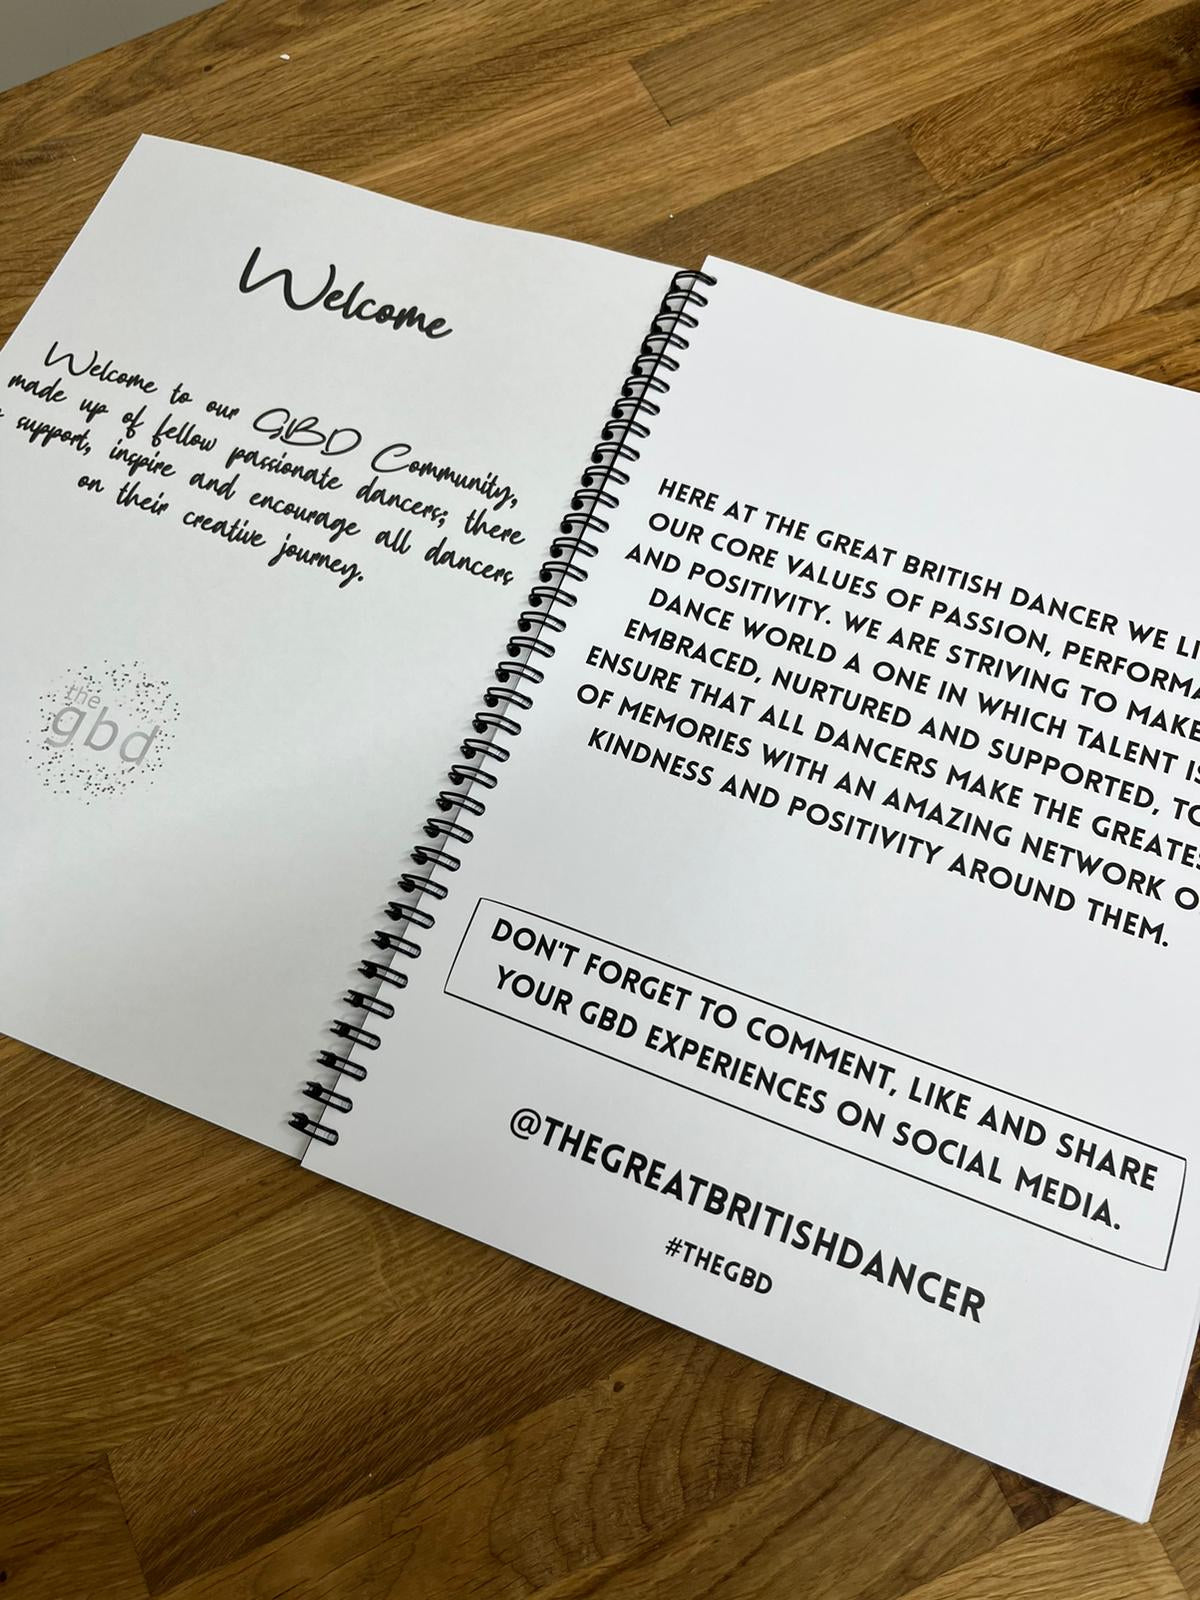 Welcome
Welcome to our GBD Community,
made up of fellow passionate dancers; there
support, inspire and encourage all dancers
on their creative journey.
the
gbd
HERE AT THE GREAT BRITISH DANCER WE
OUR CORE VALUES OF PASSION,
AND POSITIVITY. WE ARE STRIVING TO MAKE
DANCE WORLD A ONE IN WHICH TALENT IS
EMBRACED, NURTURED AND SUPPORTED, TO
ENSURE THAT ALL DANCERS MAKE THE
OF MEMORIES WITH AN AMAZING NETWORK
KINDNESS AND POSITIVITY AROUND THEM.
DON'T FORGET TO COMMENT, LIKE AND SHARE
YOUR GBD EXPERIENCES ON SOCIAL MEDIA.
@THEGREATBRITISHDANCER
#THEGBD